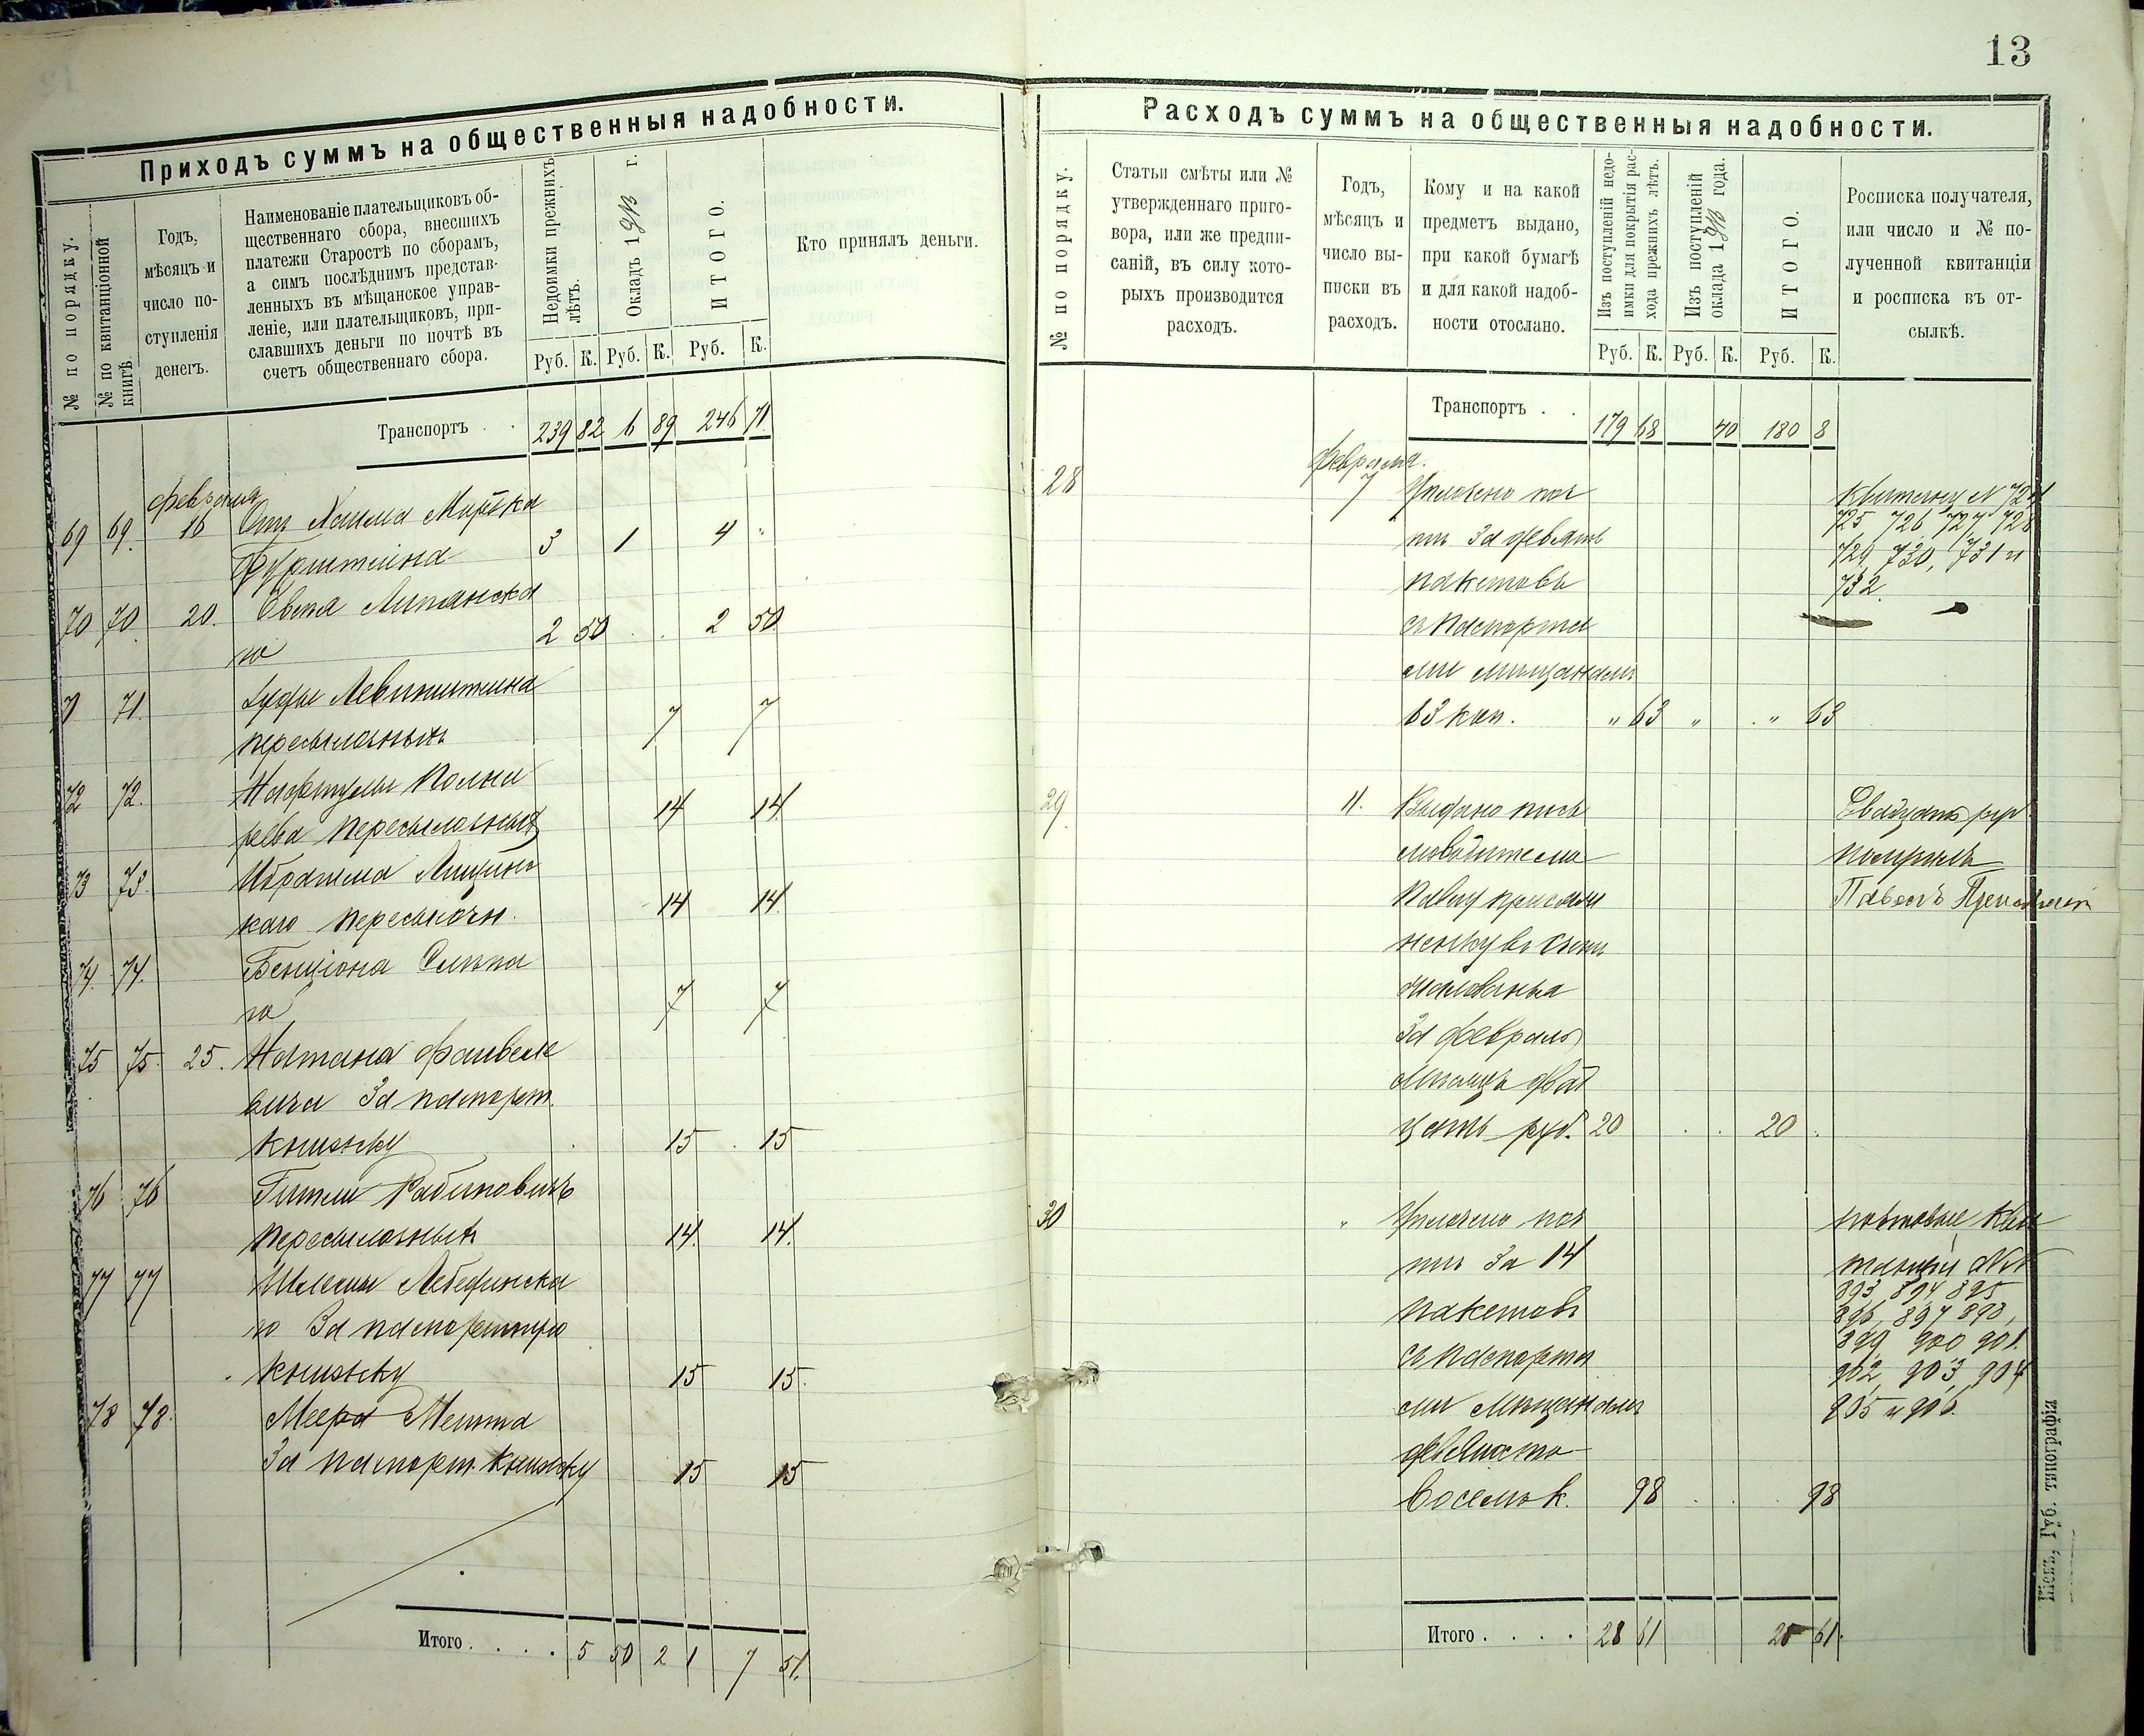 13
Приходъ суммъ на общественныя надобности.
№ по порядку.
№ по квитанціонной
книгѣ.
Годъ,
мѣсяцъ и
число по-
ступленія
денегъ.
Наименованіе плательщиковъ об-
щественнаго сбора, внесшихъ
платежи Старостѣ по сборамъ,
а симъ послѣднимъ представ-
ленныхъ въ мѣщанское управ-
леніе, или плательщиковъ, при-
славшихъ деньги по почтѣ въ
счетъ общественнаго сбора.
Недоимки прежнихъ
лѣтъ.
Окладъ 1913 г.
ИТОГО.
Кто принялъ деньги.
Руб. К. Руб. К. Руб. К.
Транспортъ . . 239 82 6 89 246 71
февраля
69 69. 16 Отъ Хаима Мортка
Фурштейна 3 1 4 "
70 70. 20. Овсея Липянска
го 2 50 . . 2 50
71 71. Левинштейна
пересылочныхъ 7 7
72 72. Нафтулы
пересылочныхъ 14 14
73 73.
каго пересылочн. 14 14.
74. 74. Бенціона
го 7 7
75 75. 25. Натана Файвеле
вича за паспорт.
книжку 15 . 15
76 76 Гители Рабиновичъ
пересылочныхъ 14. 14.
77 77 Шлемы Лебединска
го за паспортную
книжку 15 15.
78 78. Меера
за паспорт. книжку 15 15
Итого . . . . 5 50 2 1 7 51.
Расходъ суммъ на общественныя надобности.
№ по порядку.
Статьи смѣты или №
утвержденнаго приго-
вора, или же предпи-
саній, въ силу кото-
рыхъ производится
расходъ.
Годъ,
мѣсяцъ и
число вы-
писки въ
расходъ.
Кому и на какой
предметъ выдано,
при какой бумагѣ
и для какой надоб-
ности отослано.
Изъ поступленій недо-
имки для покрытія рас-
хода прежнихъ лѣтъ.
Изъ поступленій
оклада 1913 года.
ИТОГО.
Росписка получателя,
или число и № по-
лученной квитанціи
и росписка въ от-
сылкѣ.
Руб. К. Руб. К. Руб. К.
Транспортъ . . 179 68 40 180 8
февраля.
28 7 Уплочено поч
тѣ за девять
пакетовъ
съ паспорта
ми мѣщанамъ
63 коп. " 63 " . " 63
Квитанц N 724
725 726, 727 728
729, 730, 731 и
732.
29. 11. Выдано пись
моводителю
Павлу
въ счетъ
жалованья
за февраль
мѣсяцъ двад
цать руб. 20 . . 20 .
Двадцать руб
получилъ
Павелъ
30 " Уплочено поч
тѣ за 14
пакетовъ
съ паспорта
ми мѣщанамъ
девяносто
восемь к. 98 . . . 98
почтовые кви
танціи NN
893, 894 895
896, 897 898,
899, 900 901.
902, 903, 904
905 и 906.
Итого . . . . 28 61 28 61.
Кіевъ, Губ. типографія